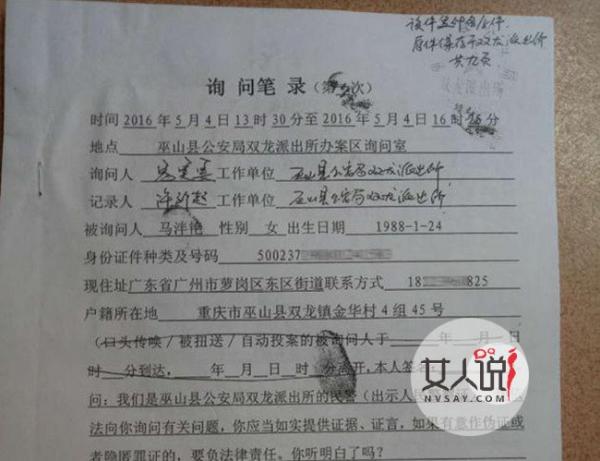 该件
原件保存于双龙派出所
共九页
双龙派出所
询问笔录（第 次）
时间 2016 年 5 月 4 日 13 时 30 分至 2016 年 5 月 4 日 16 时 分
地点 巫山县公安局双龙派出所办案区询问室
询问人 工作单位 巫山县公安局双龙派出所
记录人 工作单位 巫山县公安局双龙派出所
被询问人 马泮艳 性别 女 出生日期 1988-1-24
身份证件种类及号码 500237
现住址 广东省广州市萝岗区东区街道 联系方式 18 825
户籍所在地 重庆市巫山县双龙镇金华村 4 组 45 号
（口头传唤/被扭送/自动投案的被询问人于 年 月 日
时 分到达， 年 月 日 时 分离开，本人签名
问：我们是巫山县公安局双龙派出所的民警（出示人民
法向你询问有关问题，你应当如实提供证据、证言，如果有意作伪证或
者隐匿罪证的，要负法律责任。你听明白了吗？
女人说
NVSAY.COM